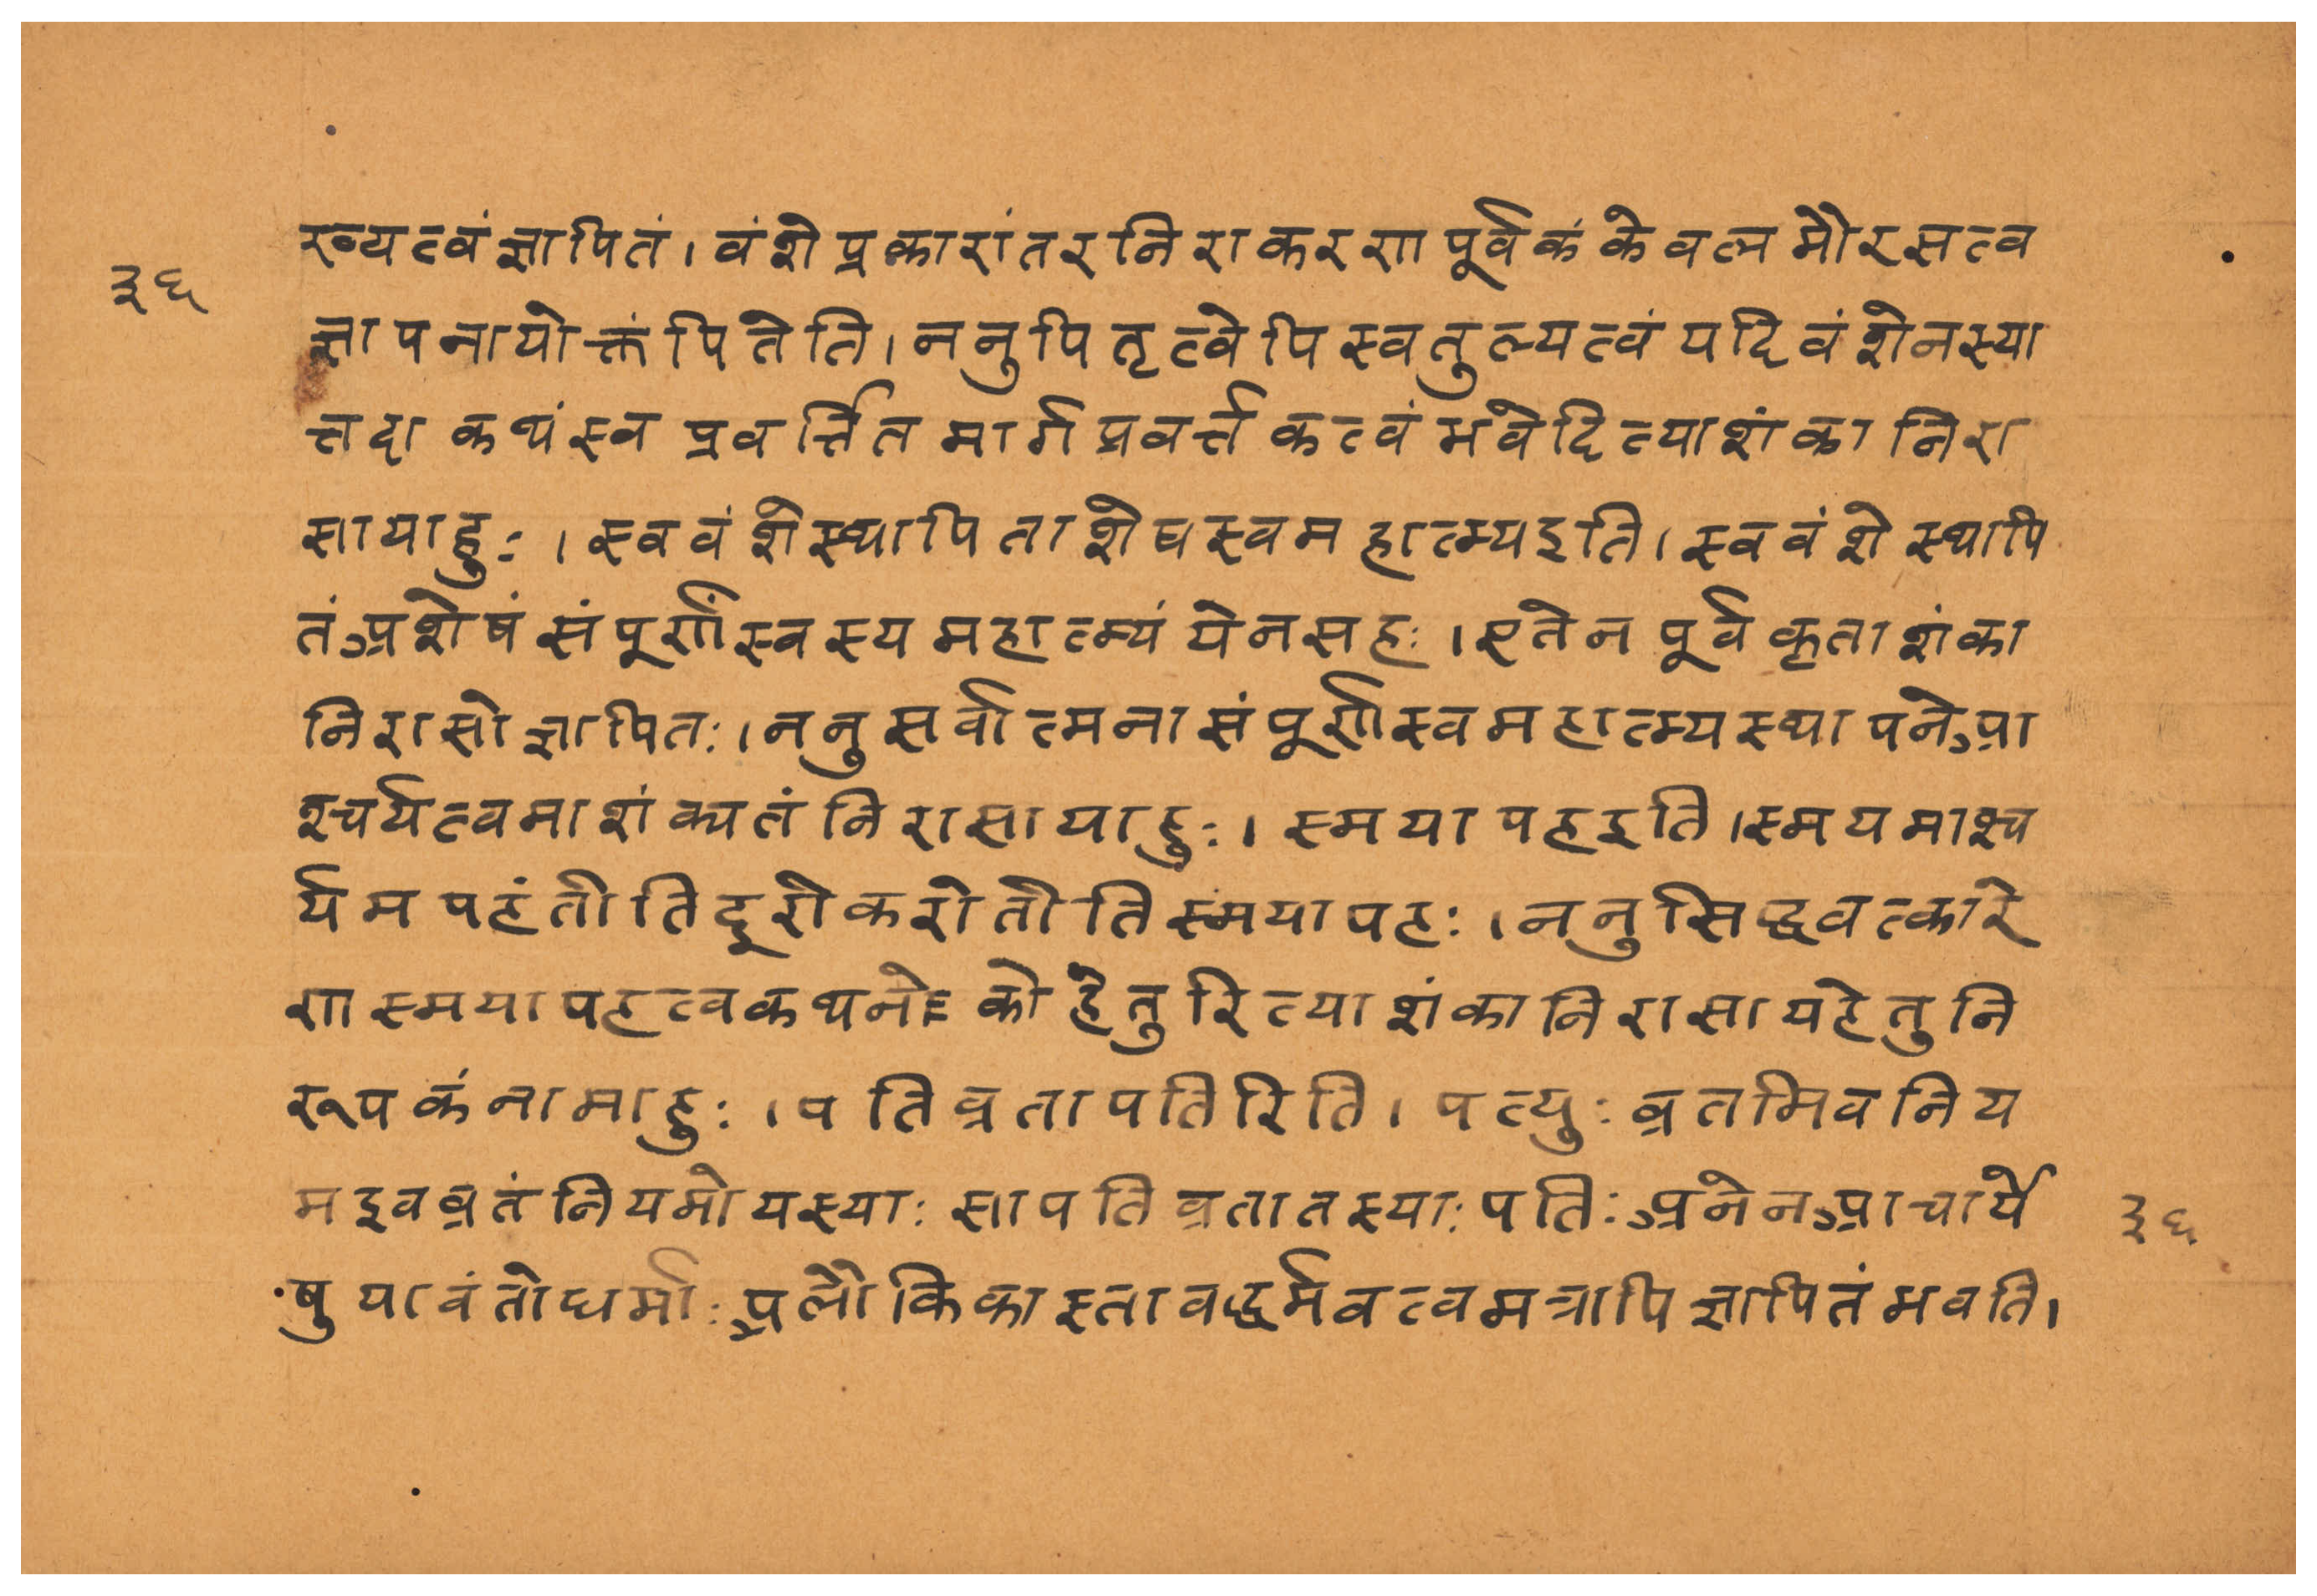 ख्यत्वंज्ञापितं।वंशेप्रकारांतरनिराकरणपूर्वकंकेवलमौरसत्व
३६
ज्ञापनायोक्तंपितेति।ननुपितृत्वेपिस्वतुल्यत्वंयदिवंशेनस्या
त्तदा कथंस्व प्रवर्त्तितमार्गप्रवर्त्तकत्वंभवेदित्याशंकानिरा
सायाहुः।स्ववंशेस्थापिताशेषस्वमहात्म्यइति।स्ववंशेस्थापि
तंअशेषंसंपूर्णंस्वस्यमहात्म्यंयेनसहः।एतेनपूर्वकृताशंका
निरासोज्ञापितः।ननुसर्वात्मनासंपूर्णस्वमहात्म्यस्थापनेआ
श्चर्यत्वमाशंक्यतंनिरासायाहुः।स्मयापहइति।स्मयमाश्च
र्यमपहंतीतिदूरीकरोतीतिस्मयापहः।ननुसिद्धवत्कारे
णस्मयापहत्वकथनेकोहेतुरित्याशंकानिरासायहेतुनि
रूपकंनामाहुः।पतिव्रतापतिरिति।पत्युःव्रतमिवनिय
मइवव्रतंनियमोयस्याःसापतिव्रतातस्याःपतिःअनेनआचार्ये
३६
षुयावंतोधर्माःअलौकिकास्तावद्धर्मवत्वमत्रापिज्ञापितंभवति।